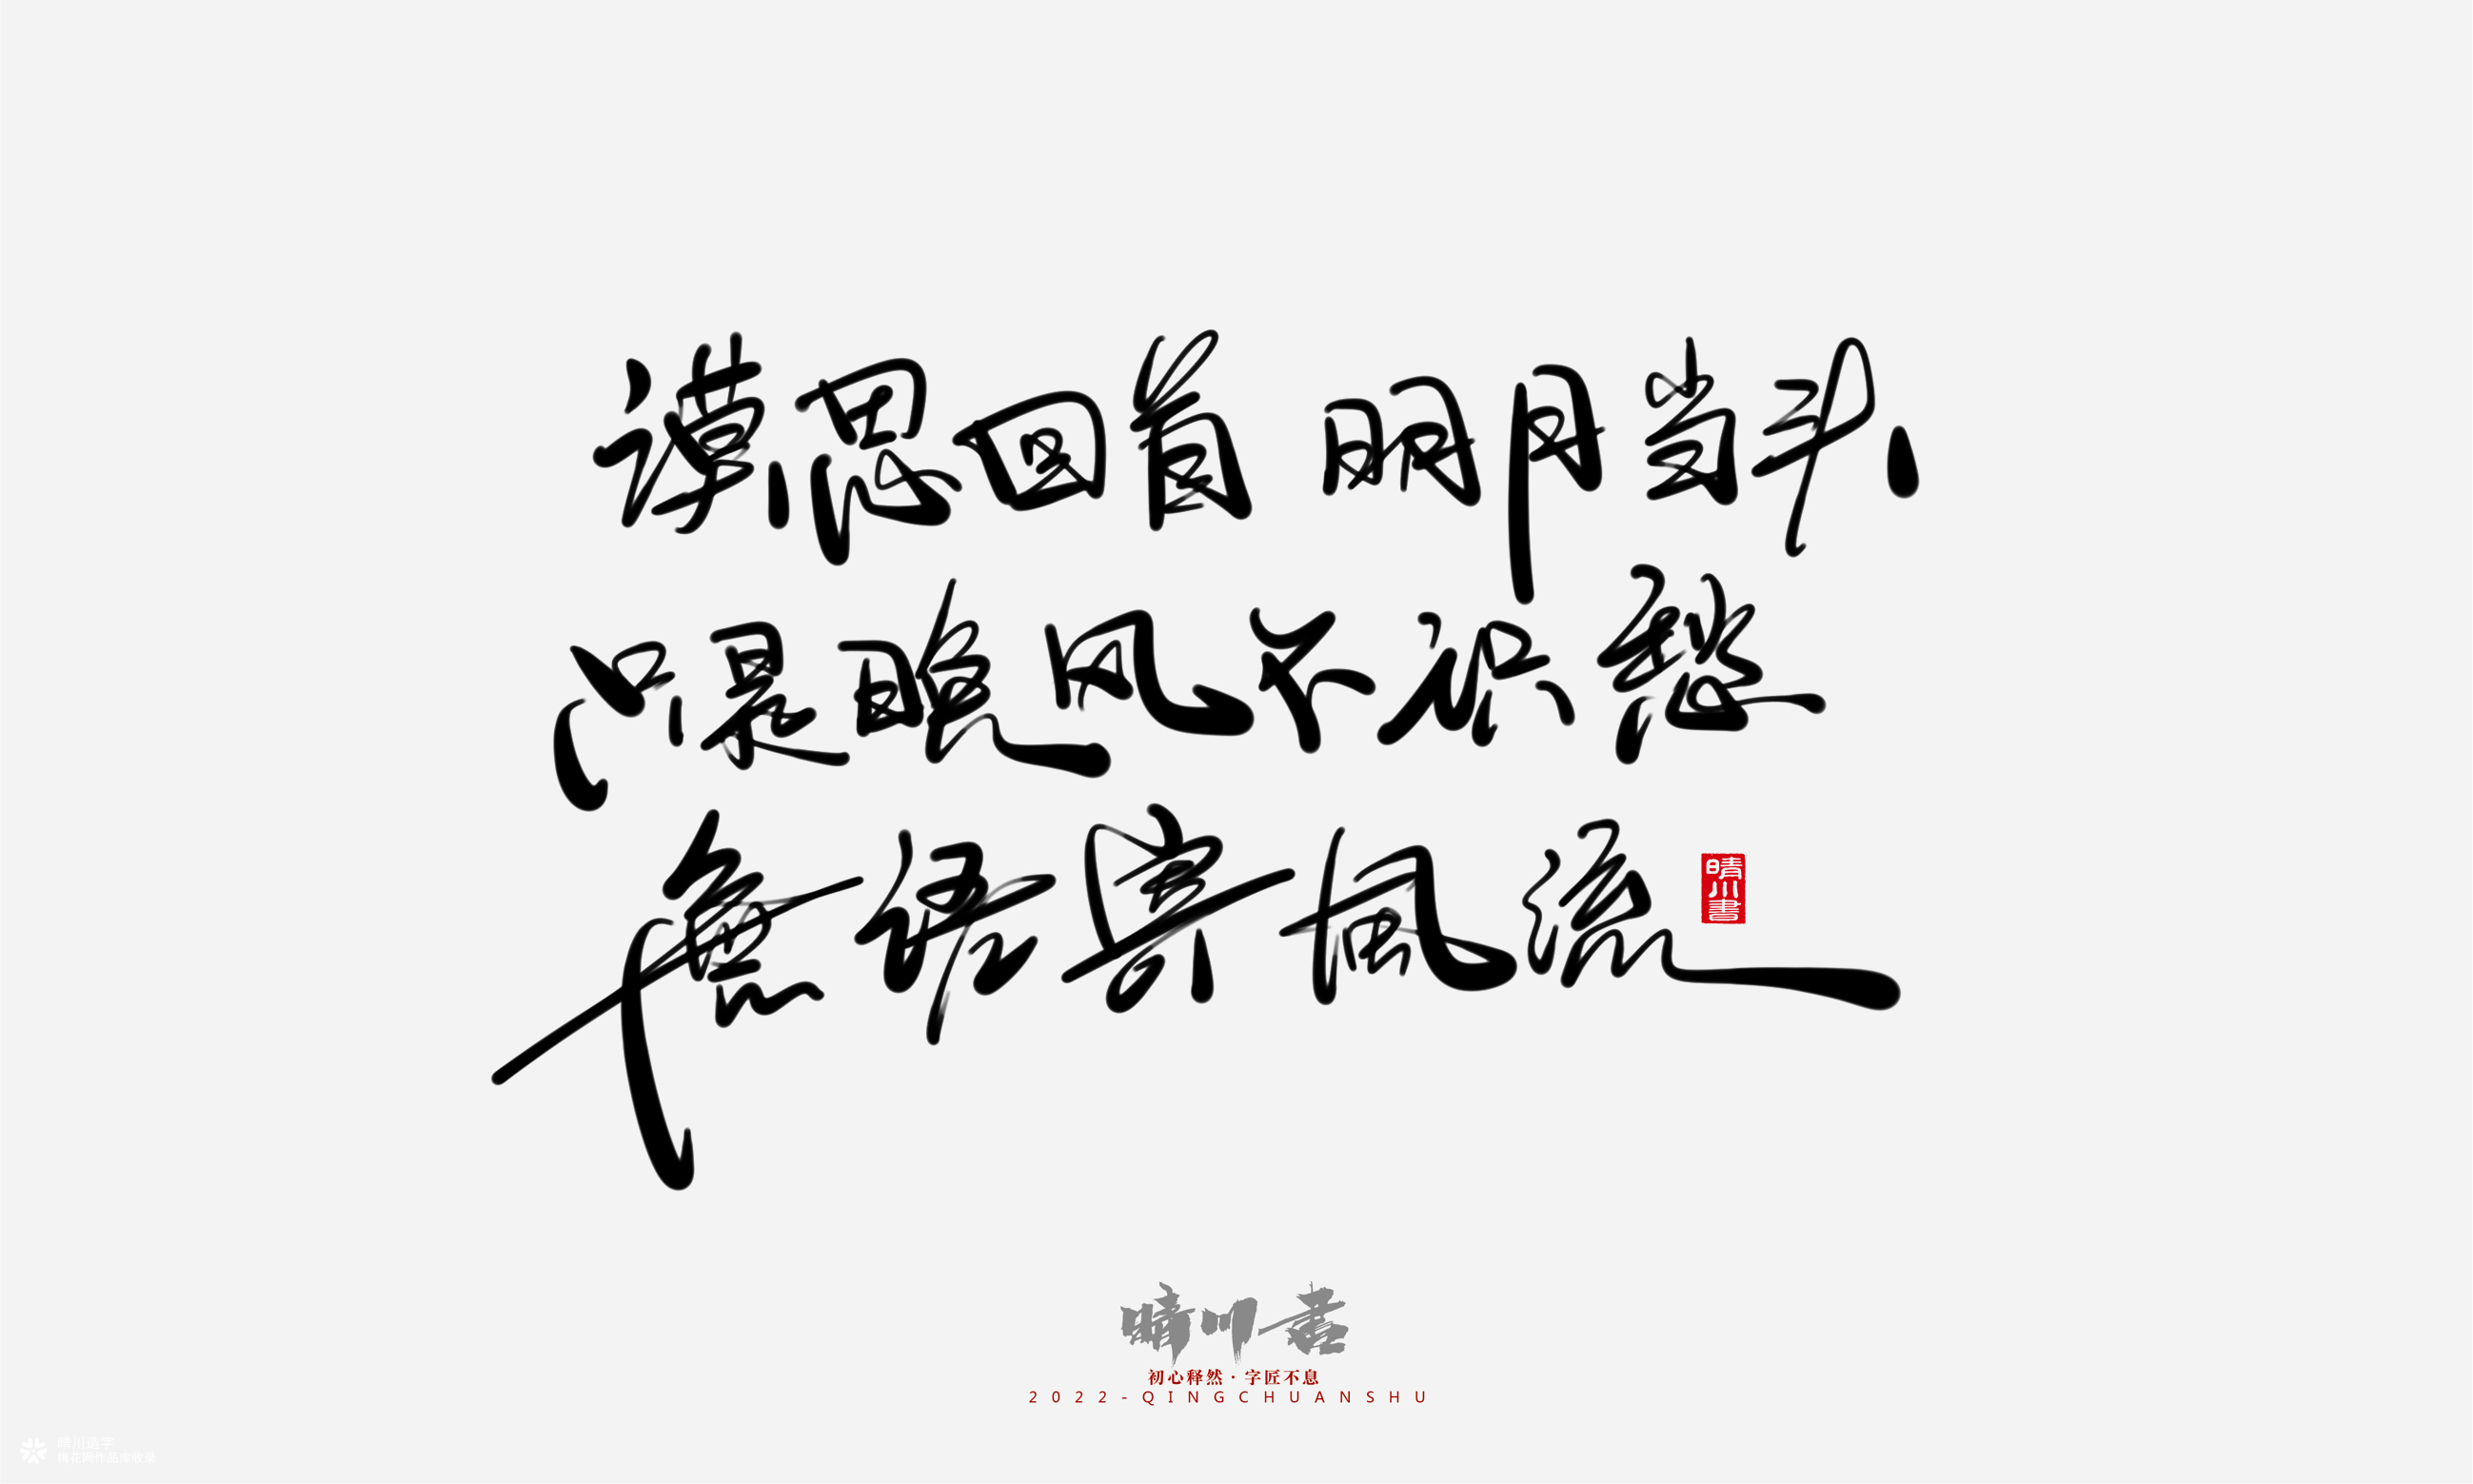 思回首 明月当头
只是晚风不识愁
無語 楓流
晴川書
晴川書
初心释然·字匠不息
2022-QINGCHUANSHU
晴川造字